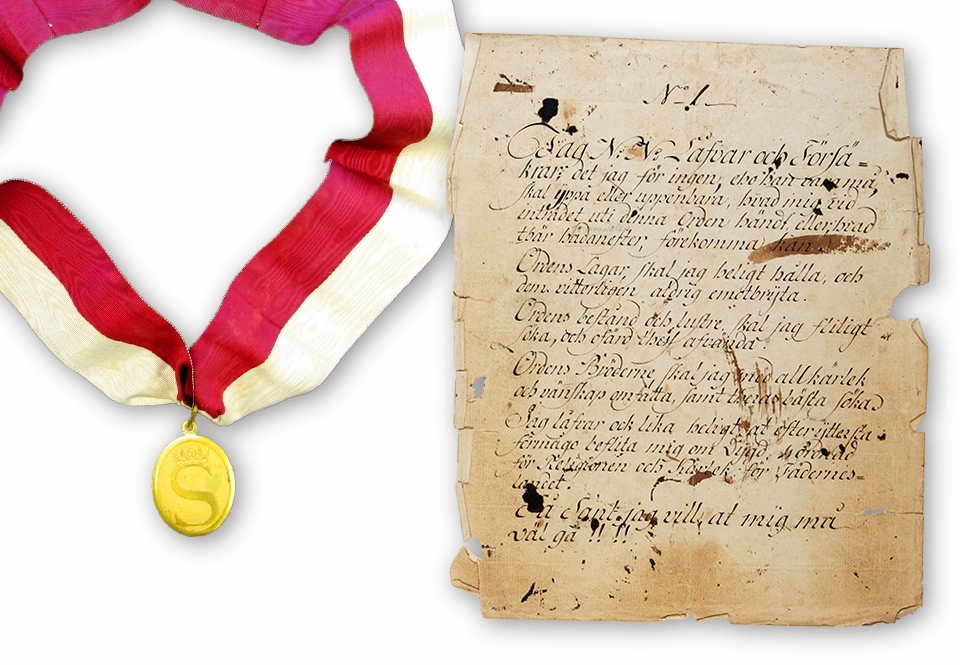 S
No 1
Jag N: N: Låfvar och Försä=
krar, det jag för ingen, eho han vara må,
skal yppa eller uppenbara, hvad mig vid
inträdet uti denna Orden händt, eller hvad
thär hädanefter, förekomma kan
Ordens Lagar, skal jag heligt hålla, och
dem vitterligen aldrig emotbryta.
Ordens bestånd och lustre, skal jag flitigt
söka, och ofärd thess afvända.
Ordens Bröderne skal jag med all kärlek
och vänskap omfatta, samt theras bästa söka
Jag låfvar och lika heligt, at efter yttersta
förmågo beflita mig om Dygd,
för Religionen och Kärlek för Fädernes=
landet.
Så Sant jag vill, at mig må
väl gå !! !!